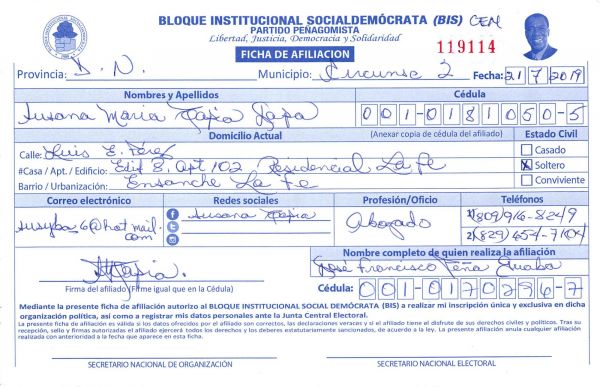 BLOQUE INSTITUCIONAL SOCIALDEMÓCRATA (BIS) CEN
PARTIDO PEÑAGOMISTA
Libertad, Justicia, Democracia y Solidaridad
119114
FICHA DE AFILIACION
Provincia: D.N. Municipio: Circunsc 2 Fecha: 21/7/2019
Nombres y Apellidos Cédula
Susana Maria Tapia 001-0181050-5
Domicilio Actual (Anexar copia de cédula del afiliado) Estado Civil
Calle: Luis E. Pérez Casado
#Casa / Apt. / Edificio: Edif 8, Apt 102, Residencial La Fe X Soltero
Barrio / Urbanización: Ensanche La Fe Conviviente
Correo electrónico Redes sociales Profesión/Oficio Teléfonos
susyba6@hotmail.com Susana Tapia Abogado 1(809)916-8249
2(829)454-7104
Nombre completo de quien realiza la afiliación
José Francisco Peña Guaba
Firma del afiliado (Firma igual que en la Cédula) Cédula: 001-0170296-7
Mediante la presente ficha de afiliación autorizo al BLOQUE INSTITUCIONAL SOCIAL DEMÓCRATA (BIS) a realizar mi inscripción única y exclusiva en dicha
organización política, así como a registrar mis datos personales ante la Junta Central Electoral.
La presente ficha de afiliación es válida si los datos ofrecidos por el afiliado son correctos, las declaraciones veraces y si el afiliado tiene el disfrute de sus derechos civiles y políticos. Tras su
recepción, sello y firmas autorizadas el afiliado ejercerá todos los derechos y los deberes estatutariamente sancionados, de acuerdo a la ley. La presente afiliación anula cualquier afiliación
realizada con anterioridad a la fecha que aparece en esta ficha.
SECRETARIO NACIONAL DE ORGANIZACIÓN SECRETARIO NACIONAL ELECTORAL